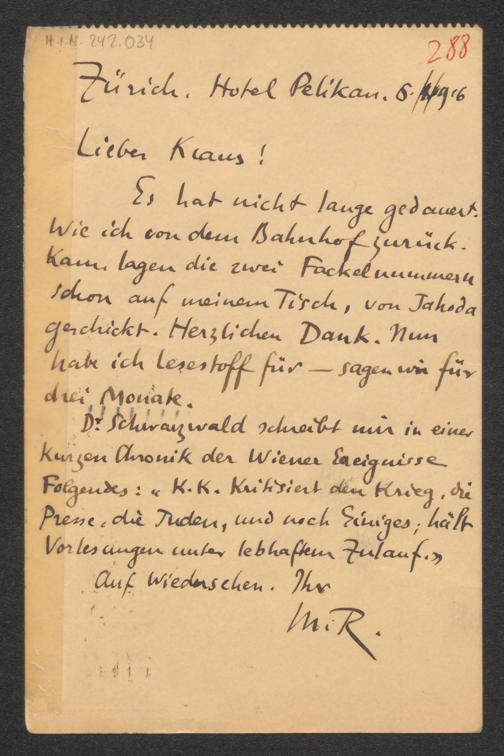 H.I.N. 242.034
288
Zürich. Hotel Pelikan. 5/1916
Lieber Kraus!
Es hat nicht lange gedauert.
Wie ich von dem Bahnhof zurück-
kam, lagen die zwei Fackelnummern
schon auf meinem Tisch, von Jahoda
geschickt. Herzlichen Dank. Nun
habe ich Lesestoff für — sagen wir für
drei Monate.
Dr Schwarzwald schreibt mir in einer
kurzen Chronik der Wiener Ereignisse
Folgendes: « K.K. Kritisiert den Krieg, die
Presse, die Juden, und noch Einiges; hält
Vorlesungen unter lebhaftem Zulauf.»
Auf Wiedersehen. Ihr
M.R.